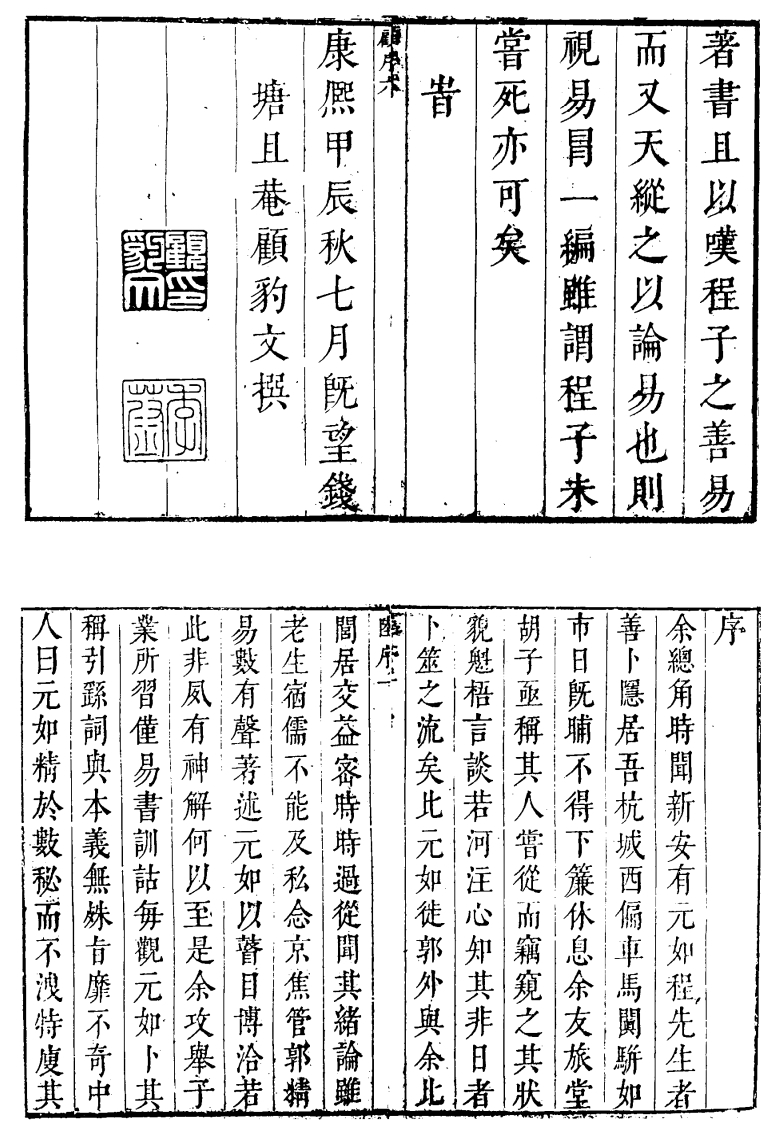 著書且以嘆程子之善易
而又天縱之以論易也則
視易冒一編雖謂程子未
嘗死亦可矣
旹
顧序六
康熈甲辰秋七月旣望錢
塘且菴顧豹文撰
顧豹文印
季蔚
序
余總角時聞新安有元如程先生者
善卜隱居吾杭城西偏車馬闐駢如
市日旣晡不得下簾休息余友旅堂
胡子亟稱其人嘗從而竊窺之其狀
貌魁梧言談若河注心知其非日者
卜筮之流矣比元如徙郭外與余比
序一
閭居交益密時時過從聞其緒論雖
老生宿儒不能及私念京焦管郭精
易數有聲著述元如以瞽目博洽若
此非夙有神解何以至是余攻舉子
業所習僅易書訓詁每觀元如卜其
稱引繇詞與本義無殊旨靡不奇中
人曰元如精於數秘而不洩特廋其